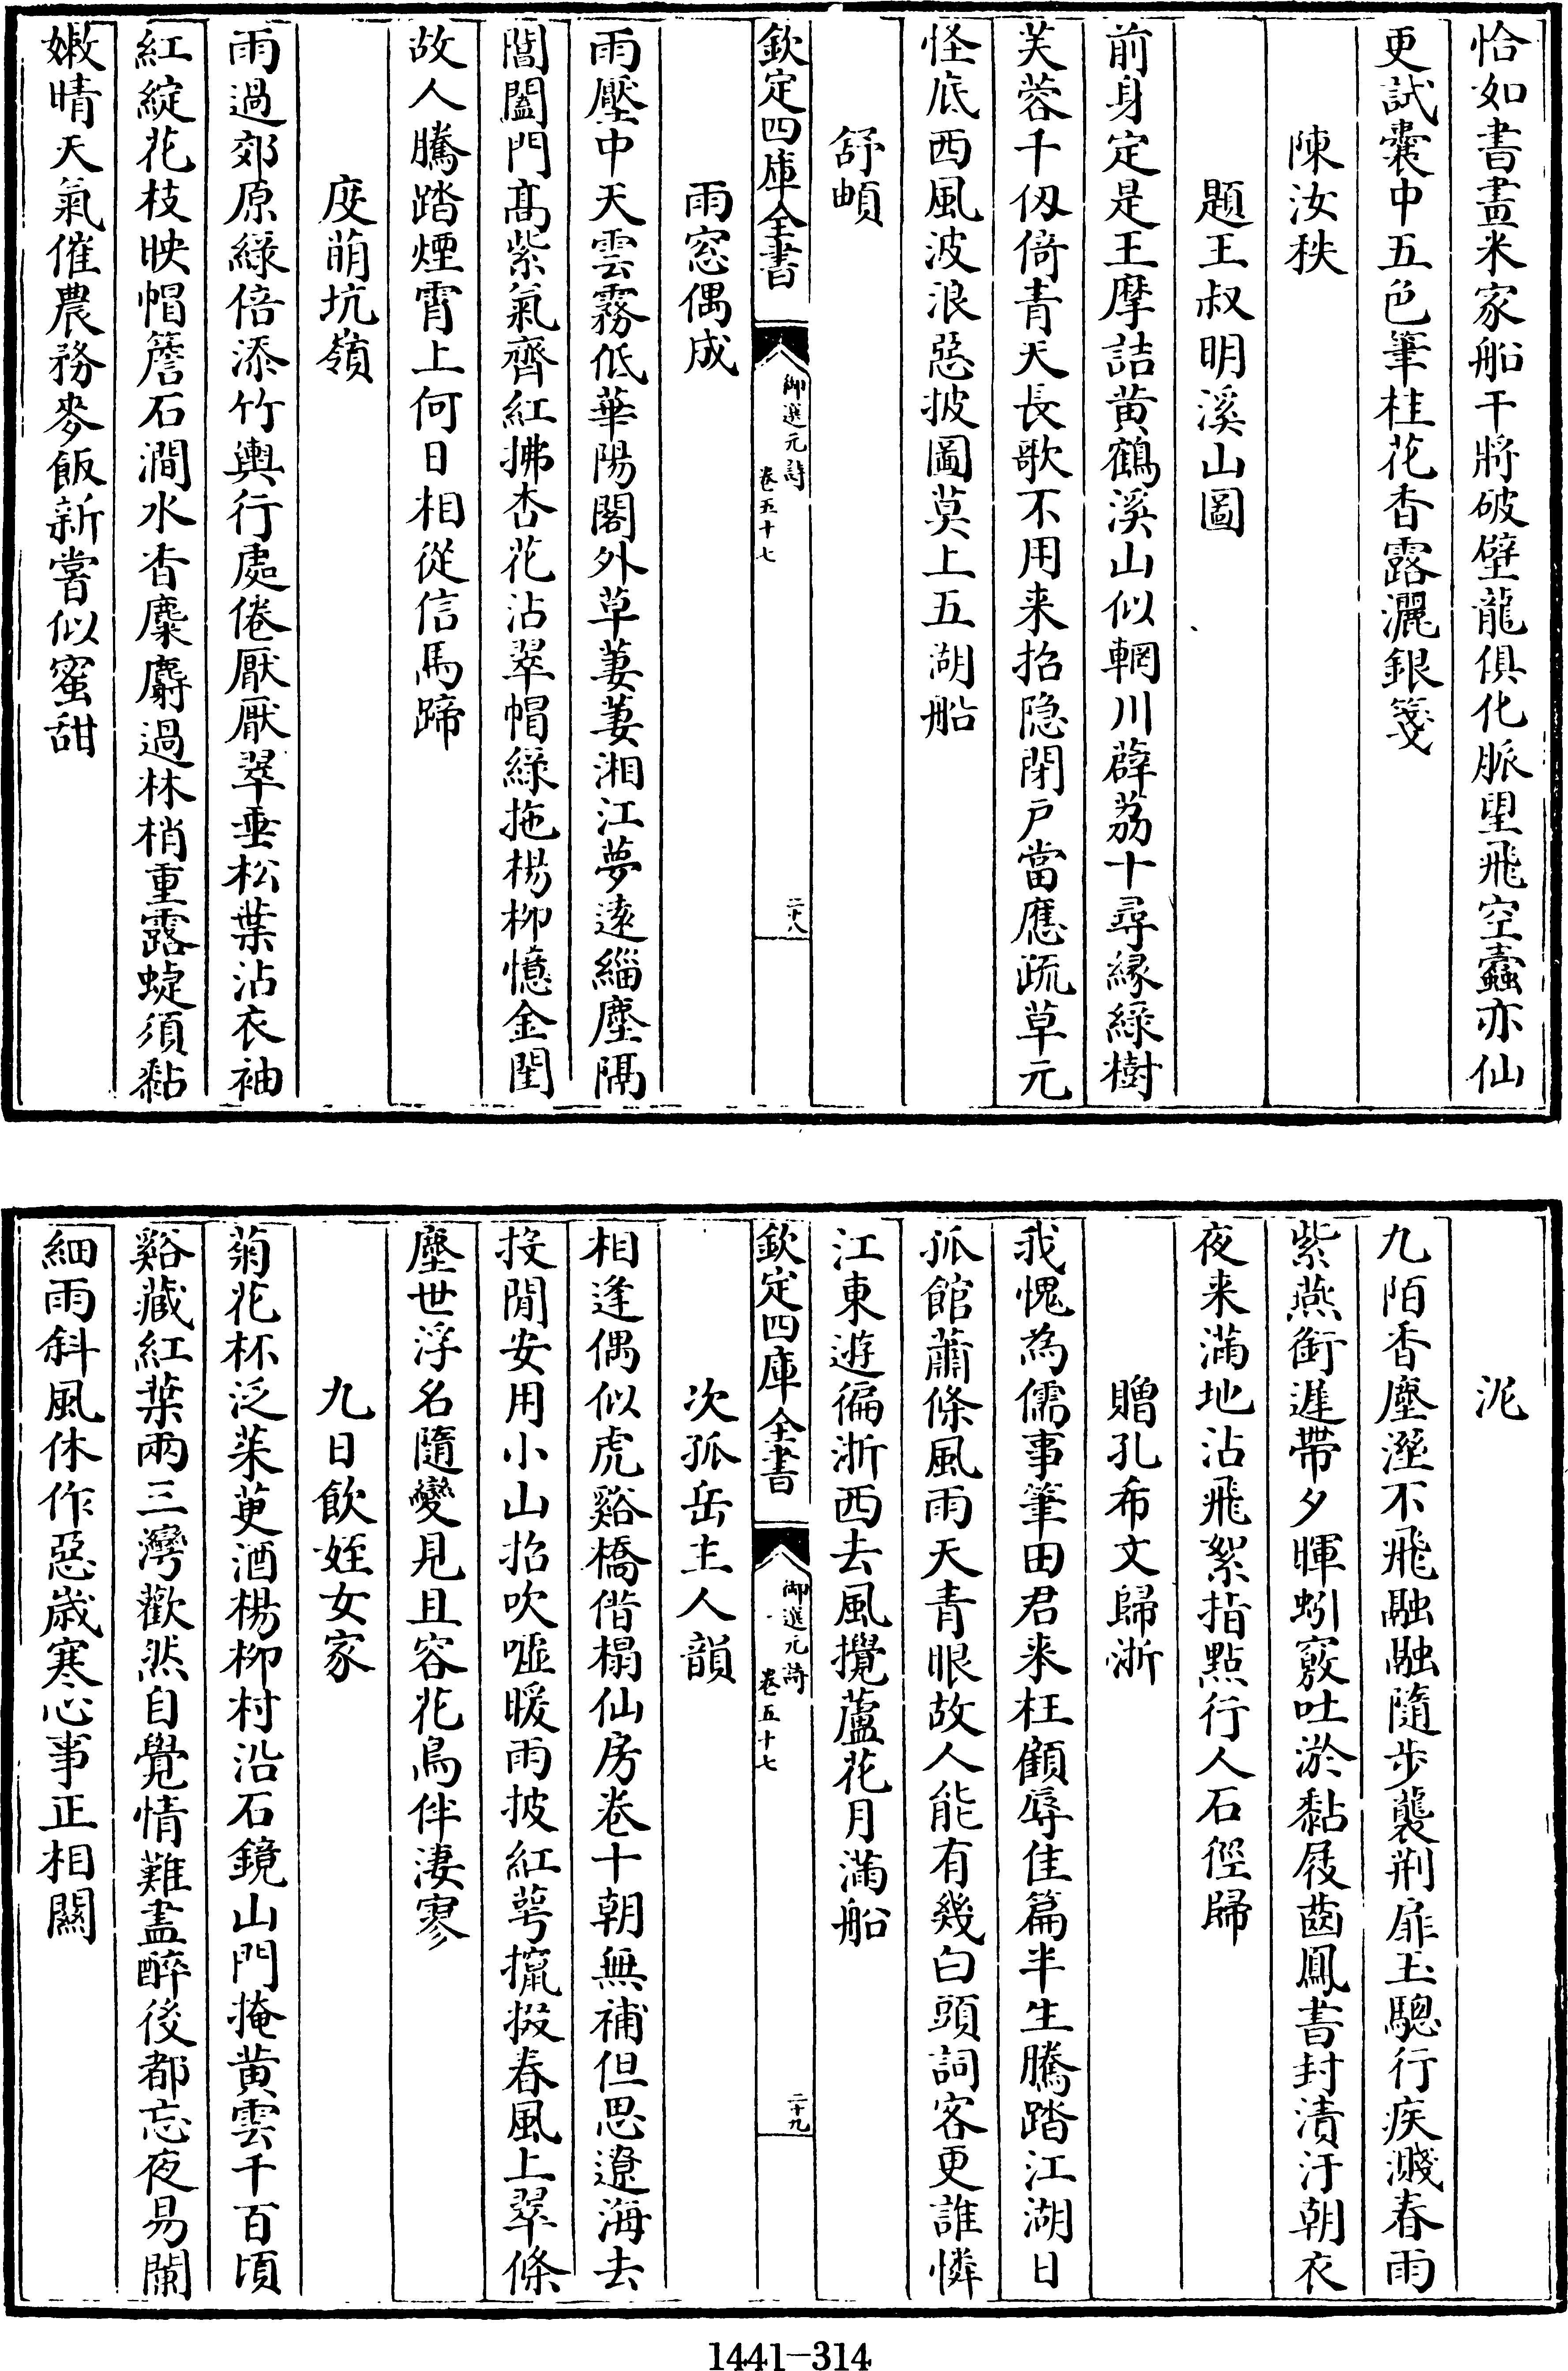 恰如書畫米家船干將破壁龍俱化脈望飛空蠹亦仙
更試囊中五色筆桂花香露灑銀箋
陳汝秩
題王叔明溪山圖
前身定是王摩詰黄鶴溪山似輞川薜荔十尋縁緑樹
芙蓉千仭倚青天長歌不用来招隐閉戸當應疏草元
怪底西風波浪惡披圖莫上五湖船
舒頔
欽定四庫全書
御選元詩
卷五十七
二十八
雨窓偶成
雨壓中天雲霧低華陽閣外草萋萋湘江夢逺緇塵隔
閶闔門髙紫氣齊紅拂杏花沾翠帽緑拖楊柳憶金閨
故人騰踏煙霄上何日相從信馬蹄
度萌坑嶺
雨過郊原緑倍添竹輿行處倦厭厭翠垂松葉沾衣袖
紅綻花枝映帽簷石澗水香麋麝過林梢重露蜨須黏
嫩晴天氣催農務麥飯新嘗似蜜甜
泥
九陌香塵溼不飛融融隨步襲荆扉玉驄行疾濺春雨
紫燕銜遲帶夕暉蚓竅吐淤黏屐齒鳳書封漬汙朝衣
夜来滿地沾飛絮指點行人石徑歸
贈孔希文歸浙
我愧為儒事筆田君来枉顧辱佳篇半生騰踏江湖日
孤館蕭條風雨天青眼故人能有幾白頭詞客更誰憐
江東逰徧浙西去風攪蘆花月滿船
欽定四庫全書
御選元詩
卷五十七
二十九
次孤岳主人韻
相逢偶似虎谿橋借榻仙房巻十朝無補但思遼海去
投閒安用小山招吹噓暖雨披紅萼攛掇春風上翠條
塵世浮名隨變見且容花鳥伴凄寥
九日飲姪女家
菊花杯泛茱萸酒楊柳村沿石鏡山門掩黄雲千百頃
谿藏紅葉兩三灣歡然自覺情難盡醉後都忘夜易闌
細雨斜風休作惡歲寒心事正相闗
1441-314